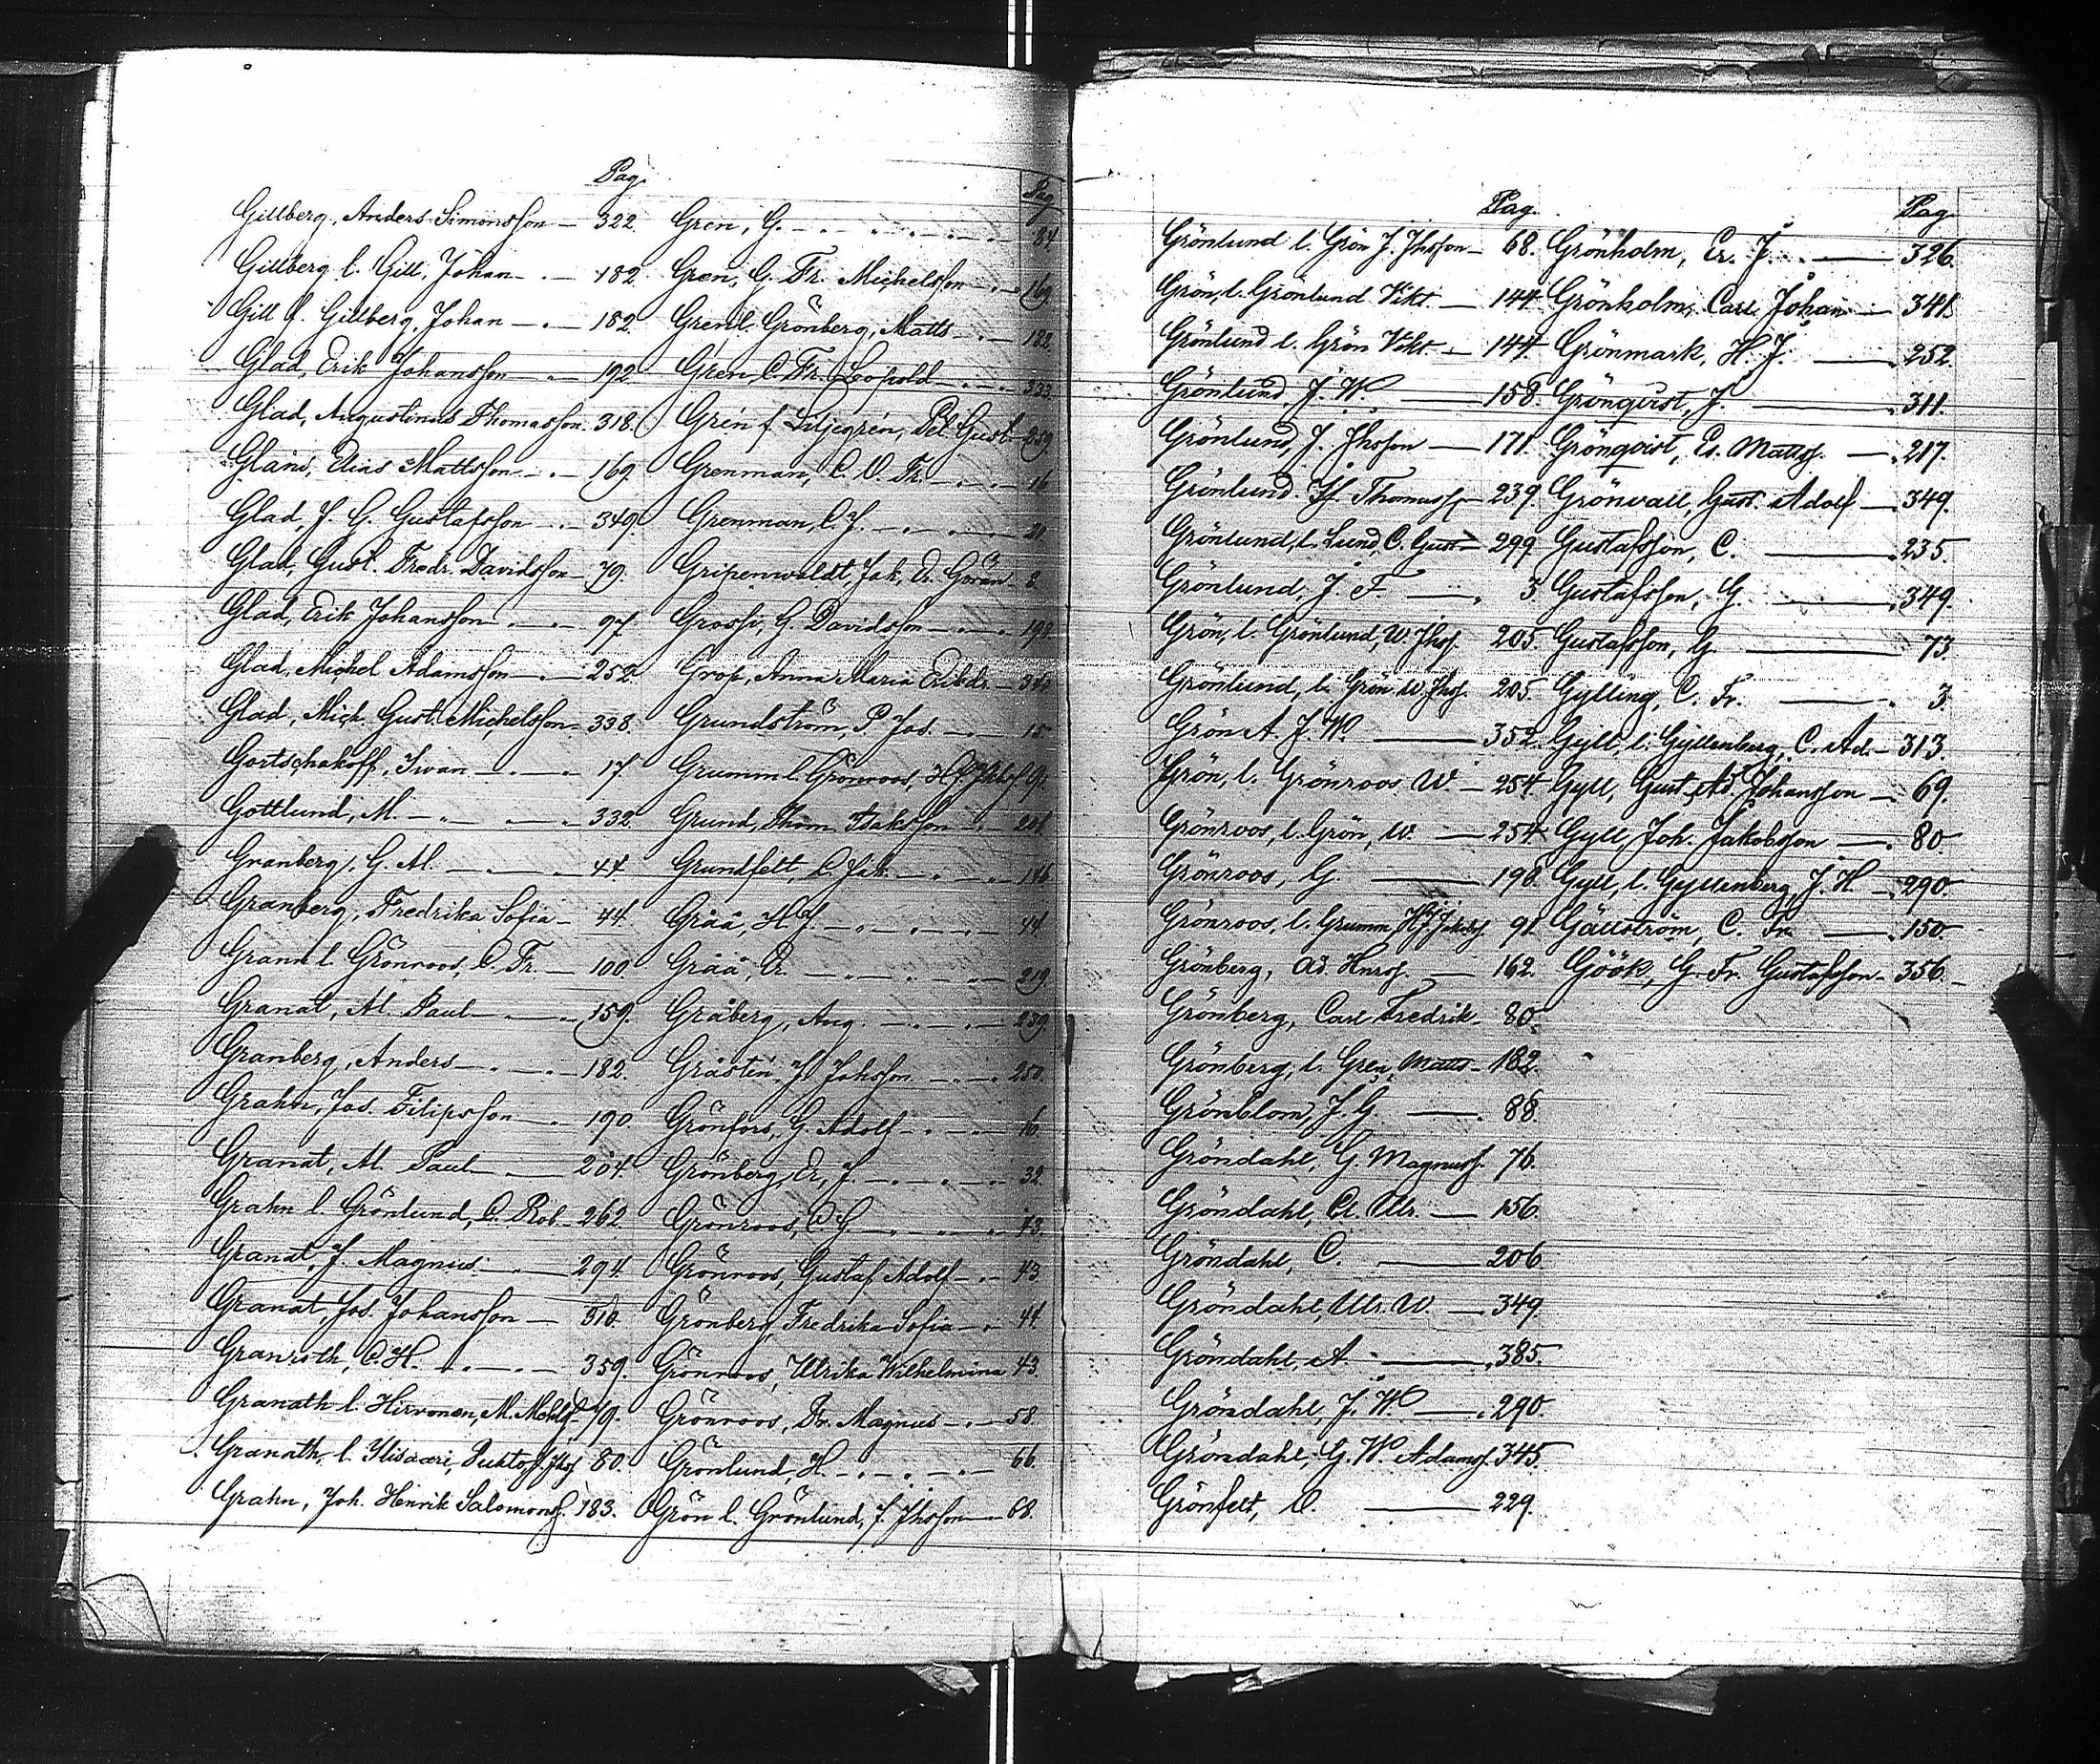 Pag.
Gillberg, Anders Simonsson 322.
Gillberg l. Gill, Johan 182.
Gill l. Gillberg, Johan 182.
Glad, Erik Johansson 192.
Glad, Augustinus Thomasson 318.
Glans, Elias Mattsson 169.
Glad, J. G. Gustafsson 349.
Glad, Gust. Fredr. Davidsson 79.
Glad, Erik Johansson 97.
Glad, Michel Adamsson 252.
Glad, Mich. Gust. Michelsson 338.
Gortschakoff, Iwan 17.
Gottlund, M. 332.
Granberg, G. Al. 44.
Granberg, Fredrika Sofia 44.
Grann l. Grönroos, C. Fr. 100
Granat, Al. Paul 159.
Granberg, Anders 182.
Grahn, Jos. Filipsson 190.
Granat, Al. Paul 204.
Grahn l. Grönlund, C. Rob. 262.
Granat, J. Magnus 294.
Granat, Jos. Johansson 310.
Granroth, C. H. 359.
Granath l. Hirvonen, M. 79.
Granath, l. Ylisaari, 80.
Grahn, Joh. Henrik Salomons. 183.
Pag.
Gren, G. 84
Gren, G. Fr. Michelsson 169.
Gren l. Grönberg, Matts 182.
Gren, C. Fr. Leopold 333.
Gren f. Liljegren, Gust. 259.
Grenman, C. O. Fr. 16
Grenman, C. J. 20.
Gripenwaldt, Jak. Er. Göran 8.
Gross, G. Davidsson 190
Grop, Anna Maria Eriksdr. 340
Grundström, P. Jos. 15
Grumm l. Grönroos, Hk J. Jakobs. 91.
Grund, Thom. Isaksson 201
Grundfelt, C. Jak. 146
Gråå, H. J. 44
Gråå, Er. 219
Gråberg, Aug. 259.
Gråsten, J. Johsson 250.
Grönfors, G. Adolf 16.
Grönberg, Er. J. 32.
Grönroos, C. G. 43.
Grönroos, Gustaf Adolf 43
Grönberg, Fredrika Sofia 44.
Grönroos, Ulrika Wilhelmina 43.
Grönroos, Fr. Magnus 58.
Grönlund, H. 66.
Grön l. Grönlund, J. Jhsson 68.
Pag.
Grönlund l. Grön J. Jhsson 68.
Grön, l. Grönlund Vikt. 144.
Grönlund l. Grön Vikt. 144.
Grönlund, J. W. 158.
Grönlund, J. Jhsson 171.
Grönlund. Thomass. 239.
Grönlund, l. Lund, C. Gust. 299.
Grönlund, J. F. 3
Grön, l. Grönlund, W. Jhss. 205.
Grönlund, l. Grön W. Jhss. 205.
Grön A. J. W. 352.
Grön, l. Grönroos W. 254.
Grönroos, l. Grön, W. 254.
Grönroos, G. 198.
Grönroos, l. Grumm, Hk J. Jakobs. 91.
Grönberg, Ad. Hnrss. 162.
Grönberg, Carl Fredrik 80.
Grönberg, l. Gren, Matts 182.
Grönblom, J. G. 88.
Gröndahl, G. Magnuss. 76.
Gröndahl, Cl. Ulr. 156.
Gröndahl, C. 206
Gröndahl, Ulr. W. 349.
Gröndahl, A. 385.
Gröndahl, J. W. 290.
Gröndahl, G. W. Adams. 345.
Grönfelt, C. 229.
Pag.
Grönholm, Er. J. 326.
Grönholm, Carl Johan 341.
Grönmark, H. J. 252.
Grönqvist, J. 311.
Grönqvist, Es. Matts. 217.
Grönvall, Gust. Adolf 349.
Gustafsson, C. 235.
Gustafsson, G. 349.
Gustafsson, G. 73.
Gylling, C. Fr. 3.
Gyll, l. Gyllenberg, C. Ad. 313.
Gyll, Gust. Ad. Johansson 69.
Gyll, Joh. Jakobsson 80.
Gyll, l. Gyllenberg, J. H. 290.
Gällström, C. Fr. 150.
Göök, G. Fr. Gustafsson 356.